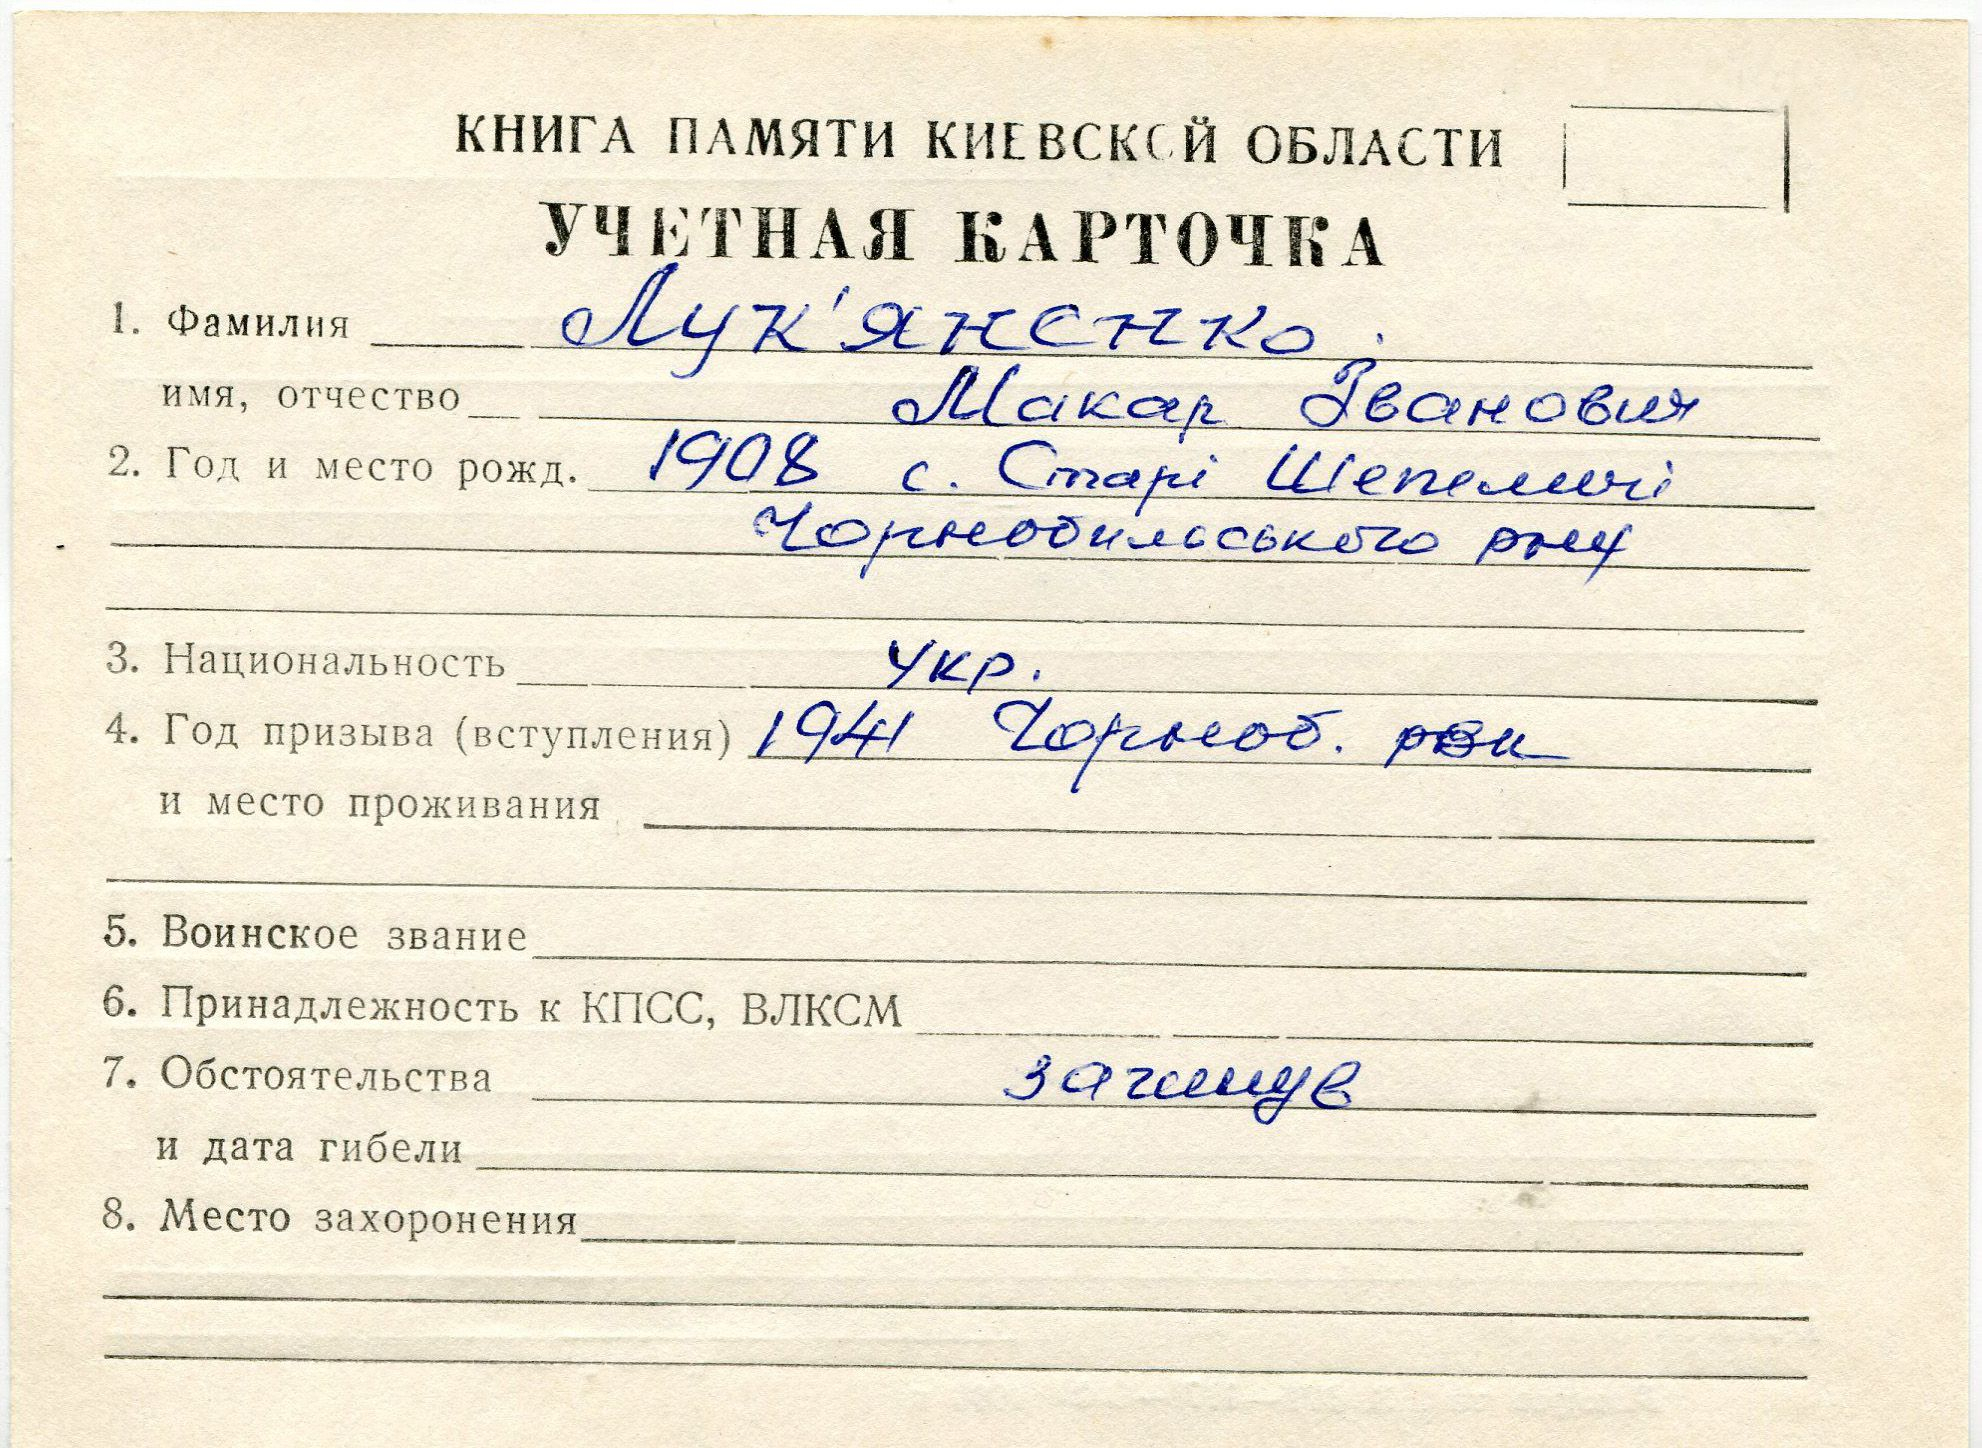 КНИГА ПАМЯТИ КИЕВСКОЙ ОБЛАСТИ
УЧЕТНАЯ КАРТОЧКА
1. Фамилия Лук'яненко
имя, отчество Макар Іванович
2. Год и место рожд. 1908 с. Старі Шепеличі
Чорнобильського р-ну
3. Национальность Укр.
4. Год призыва (вступления) 1941 Чорноб. рвк
и место проживания
5. Воинское звание
6. Принадлежность к КПСС, ВЛКСМ
7. Обстоятельства загинув
и дата гибели
8. Место захоронения